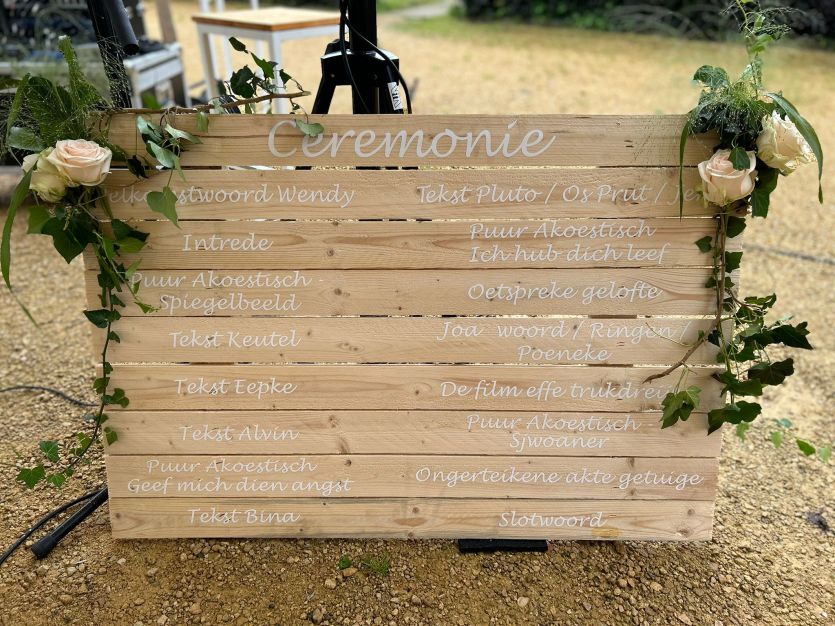 Ceremonie
Wendy
Intrede
Puur Akoestisch -
Spiegelbeeld
Tekst Keutel
Tekst Eepke
Tekst Alvin
Puur Akoestisch
Geef mich dien angst
Tekst Bina
Tekst Pluto / Os Prut /
Puur Akoestisch
Ich hub dich leef
Oetspreke gelofte
Joa woord / Ringen /
Poeneke
De film effe trukdrei
Puur Akoestisch -
Sjwoaner
Ongerteikene akte getuige
Slotwoord